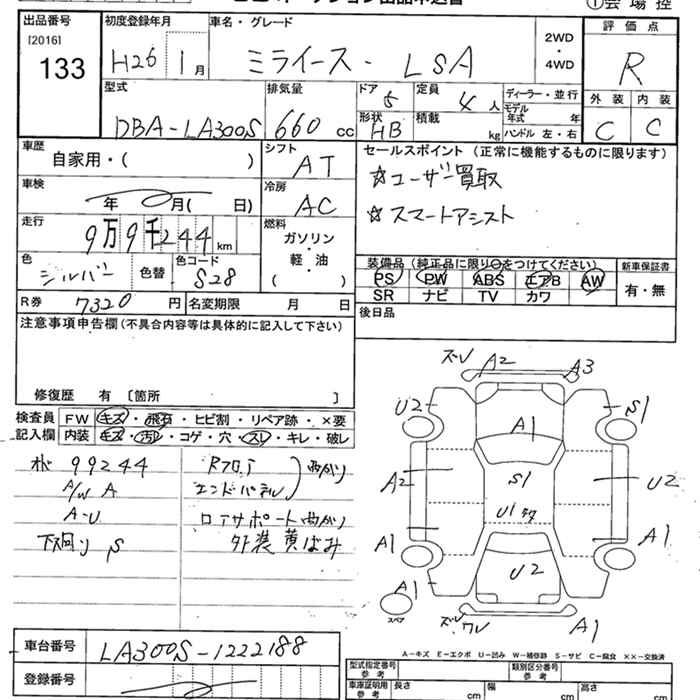 ①会場控
出品番号 初度登録年月 車名・グレード 評価点
[2016]
133
H26 1月 ミライース - LSA
2WD
・
4WD
R
型式 排気量 ドア 5 定員 4人 ディーラー・並行 外装 内装
モデル
年式 年
DBA-LA300S 660 cc 形状 HB 積載 kg ハンドル 左・右 C C
車歴 シフト セールスポイント (正常に機能するものに限ります)
自家用・( ) AT ☆ユーザー買取
車検 冷房
年 月( 日) AC ☆スマートアシスト
走行 燃料
9万9千244km ガソリン
・
色 色コード 軽・油 装備品 (純正品に限り○をつけてください) 新車保証書
シルバー 色替 S28 ( ) PS PW ABS エアB AW 有・無
SR ナビ TV カワ
R券 7320円 名変期限 月 日 後日品
注意事項申告欄(不具合内容等は具体的に記入して下さい)
修復歴 有 〔箇所 〕
検査員 FW キズ・飛石・ヒビ割・リペア跡・×要
記入欄 内装 キズ・汚レ・コゲ・穴・スレ・キレ・破レ
99244 Rフロア 曲がり
A/W A エンドパネル
A-U ロアサポート曲がり
下廻り S 外装黄ばみ
ズレ A2 A3
U2 A1 S1
A2 S1 U2
U1
A1 A1
U2
A1
スペア A1
A-キズ E-エクボ U-凹み W-補修跡 S-サビ C-腐食 ××-交換済
車台番号 LA300S-1222188
登録番号
型式指定番号 参考 類別区分番号 参考
車庫証明用 参考 長さ cm 幅 cm 高さ cm